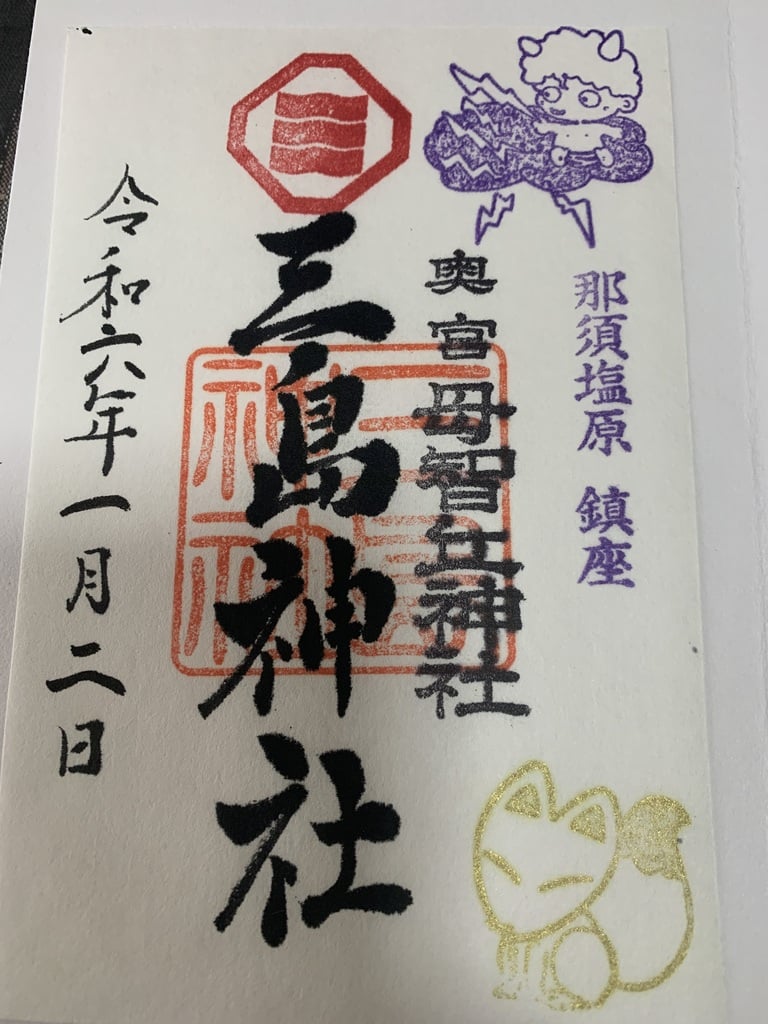 那須塩原 鎮座
奥宮 母智丘神社
三島神社
令和六年一月二日